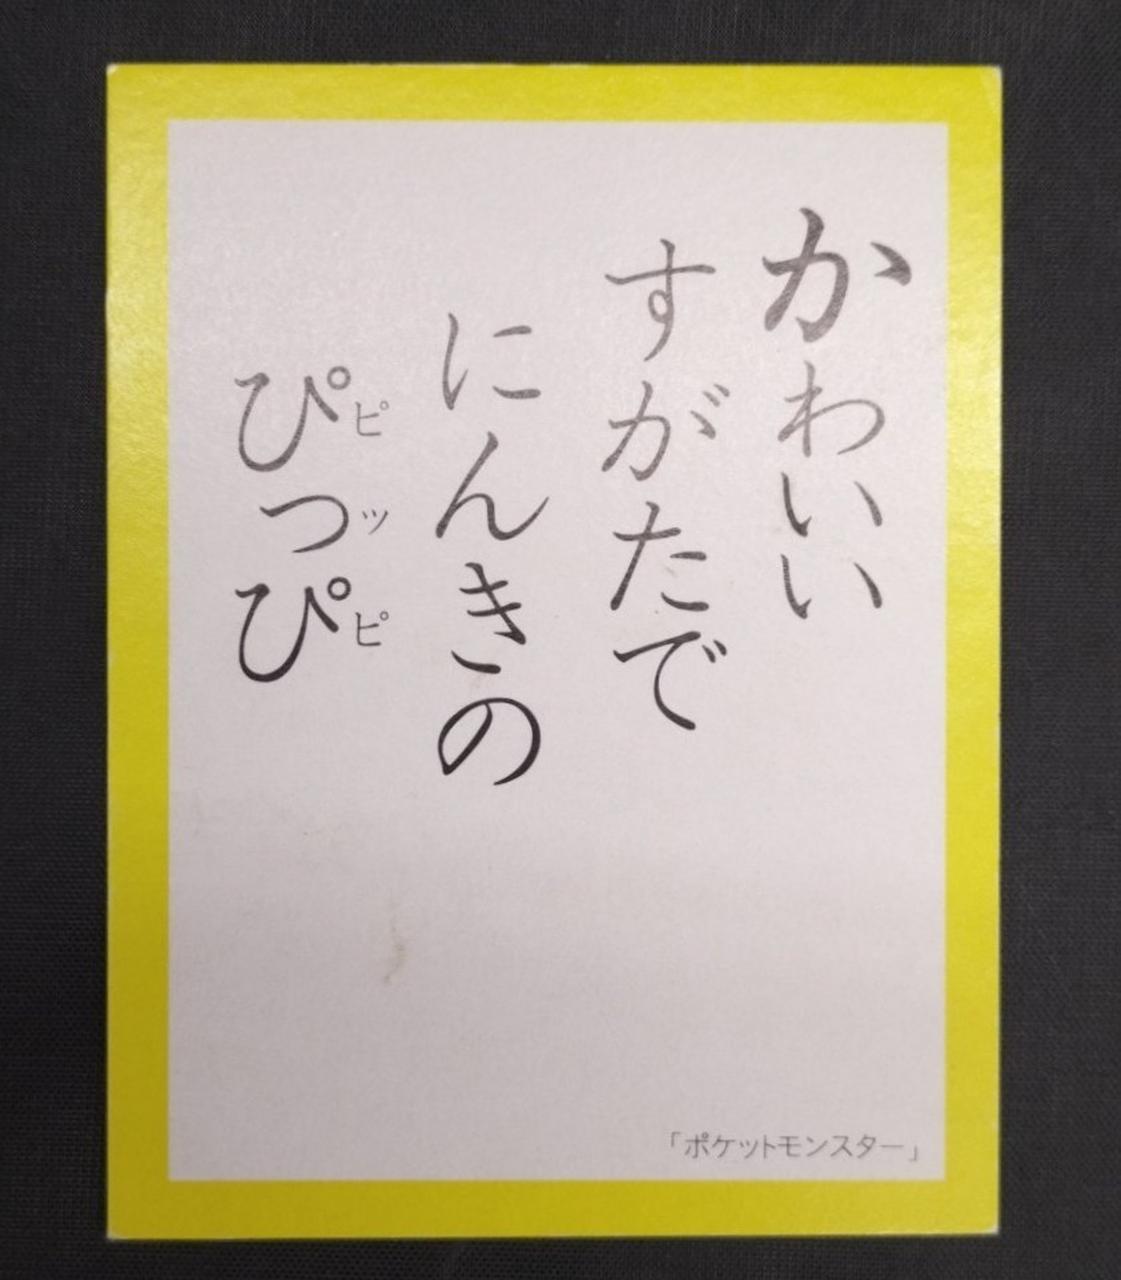 かわいい
すがたで
にんきの
ぴっぴ
ピッピ
「ポケットモンスター」